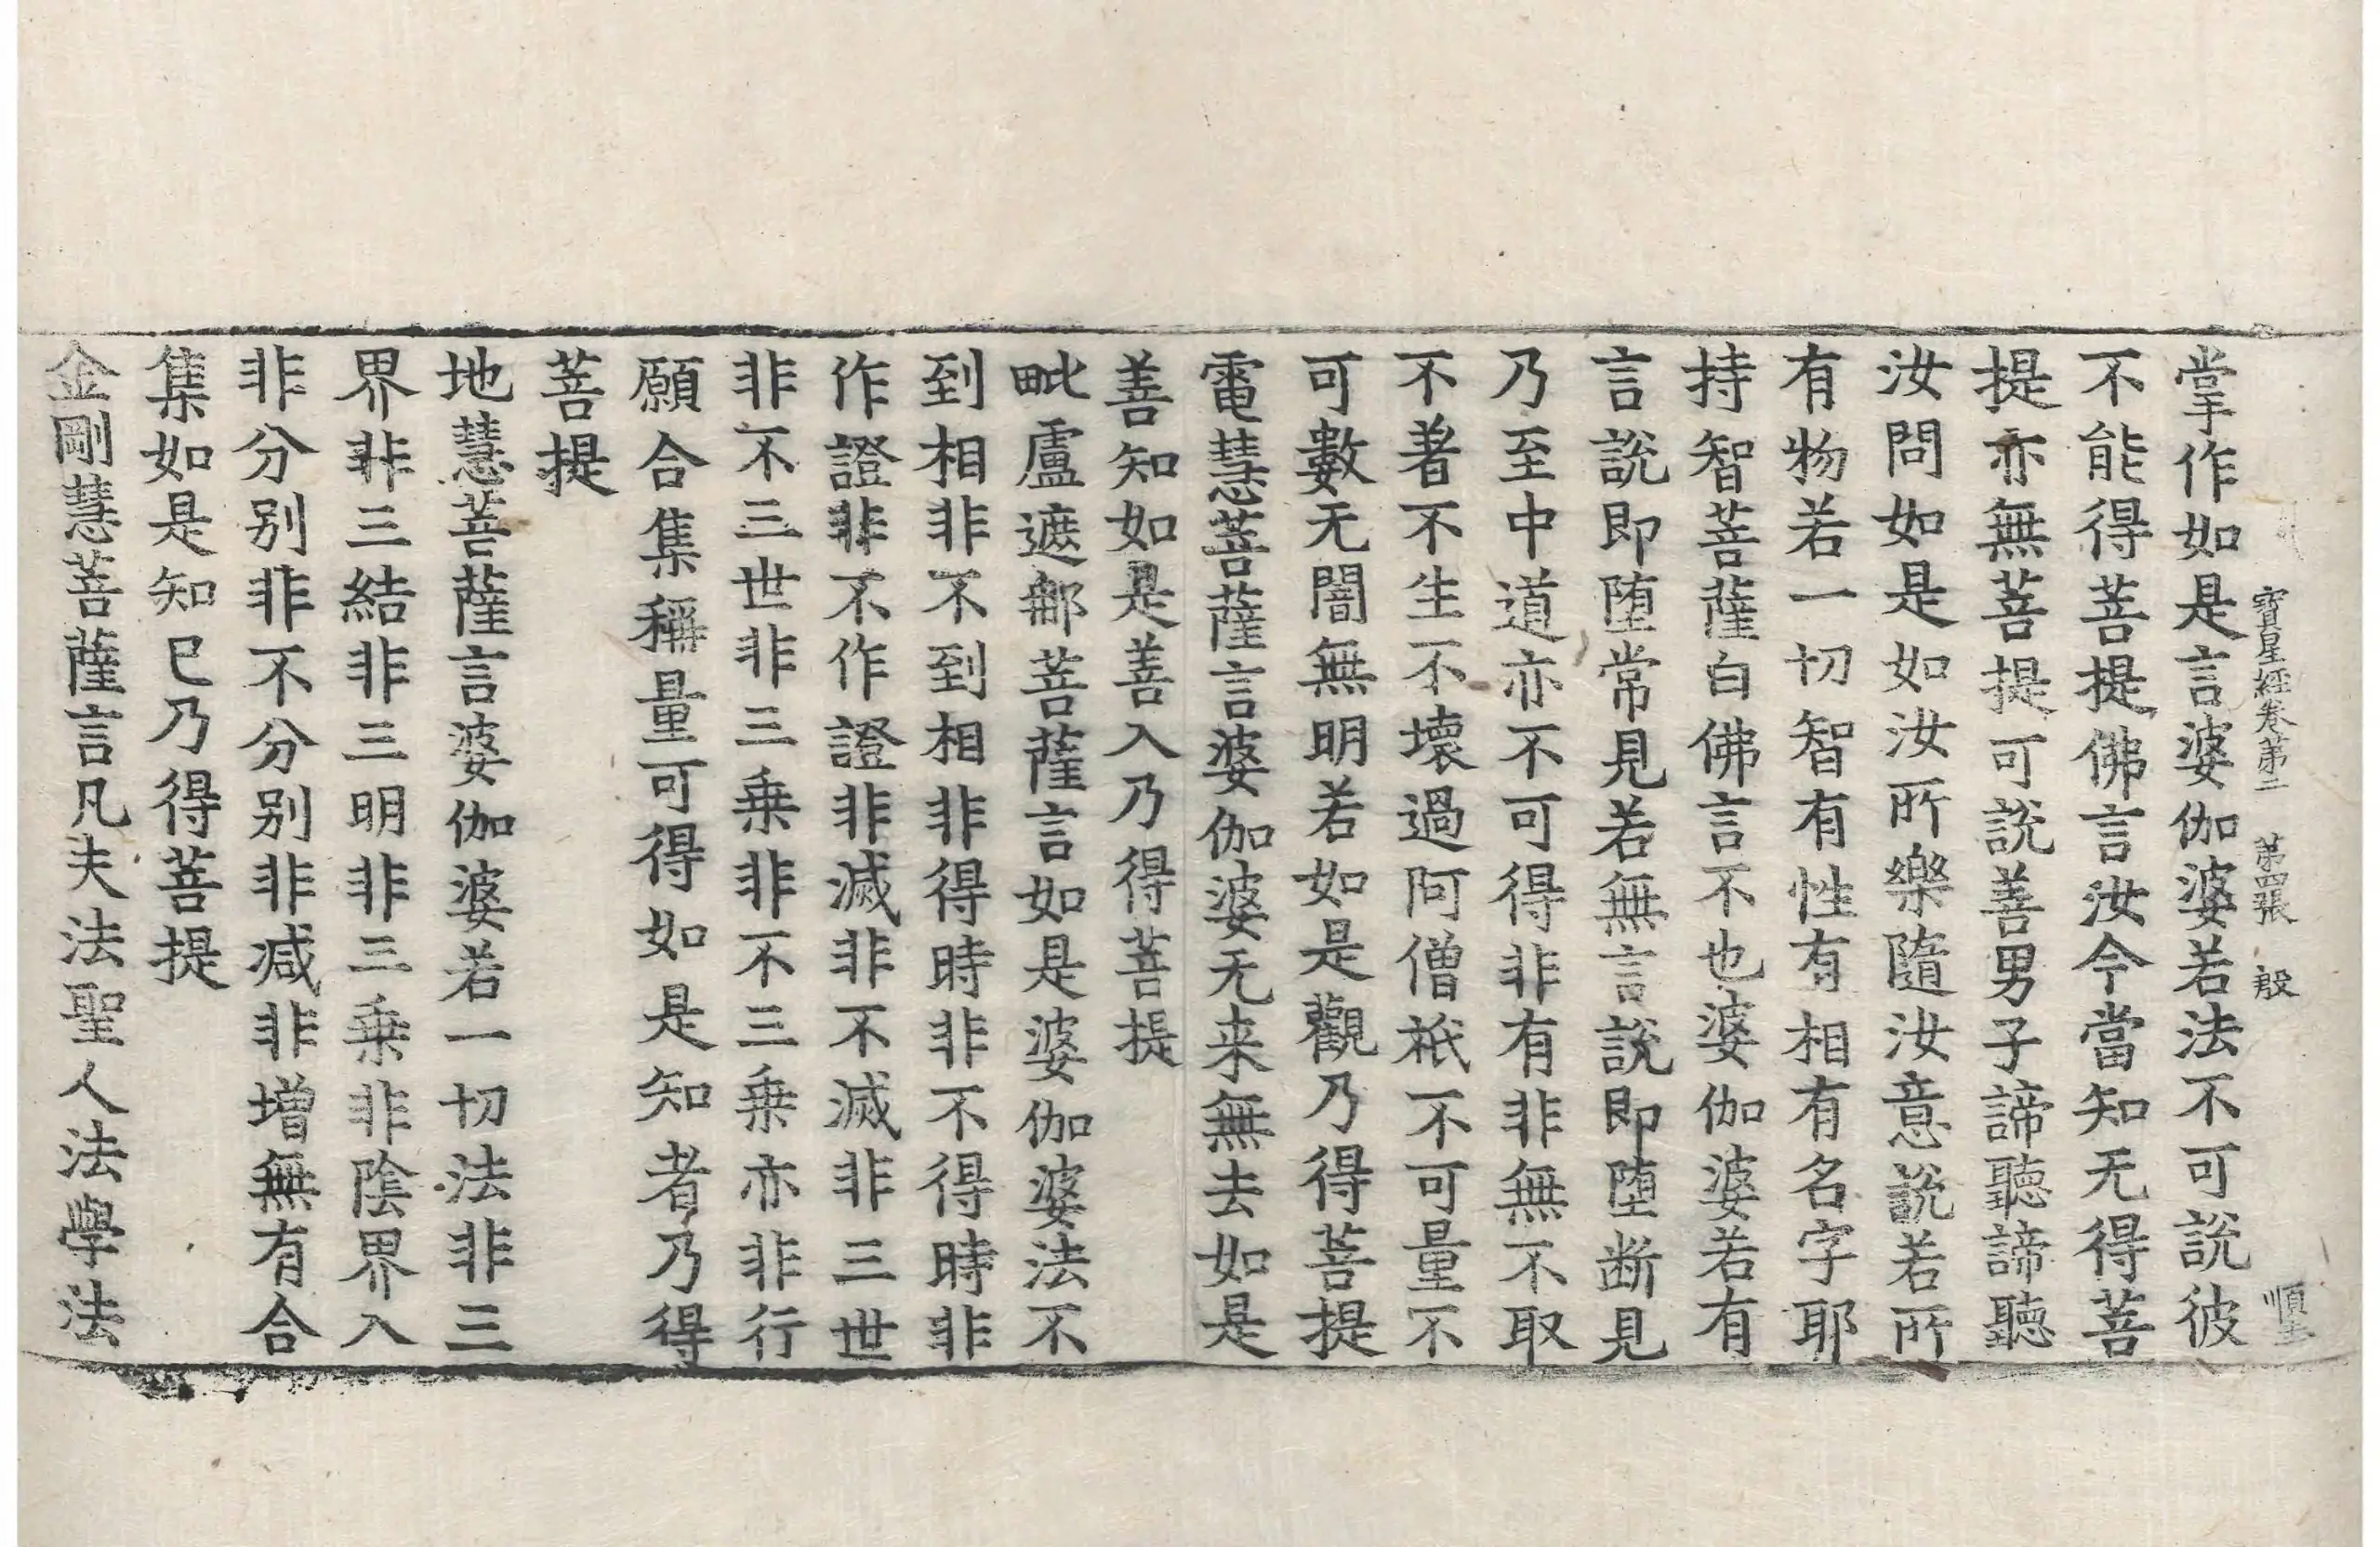 寶星經卷第二 第四張 殷
順
掌作如是言婆伽婆若法不可說彼
不能得菩提佛言汝今當知无得菩
提亦無菩提可說善男子諦聽諦聽
汝問如是如汝所樂隨汝意說若所
有物若一切智有性有相有名字耶
持智菩薩白佛言不也婆伽婆若有
言說即堕常見若無言說即堕断見
乃至中道亦不可得非有非無不取
不著不生不壞過阿僧祇不可量不
可數无闇無明若如是觀乃得菩提
電慧菩薩言婆伽婆无来無去如是
善知如是善入乃得菩提
毗盧遮那菩薩言如是婆伽婆法不
到相非不到相非得時非不得時非
作證非不作證非滅非不滅非三世
非不三世非三乗非不三乗亦非行
願合集稱量可得如是知者乃得
菩提
地慧菩薩言婆伽婆若一切法非三
界非三結非三明非三乗非陰界入
非分别非不分别非減非增無有合
集如是知已乃得菩提
金剛慧菩薩言凡夫法聖人法學法